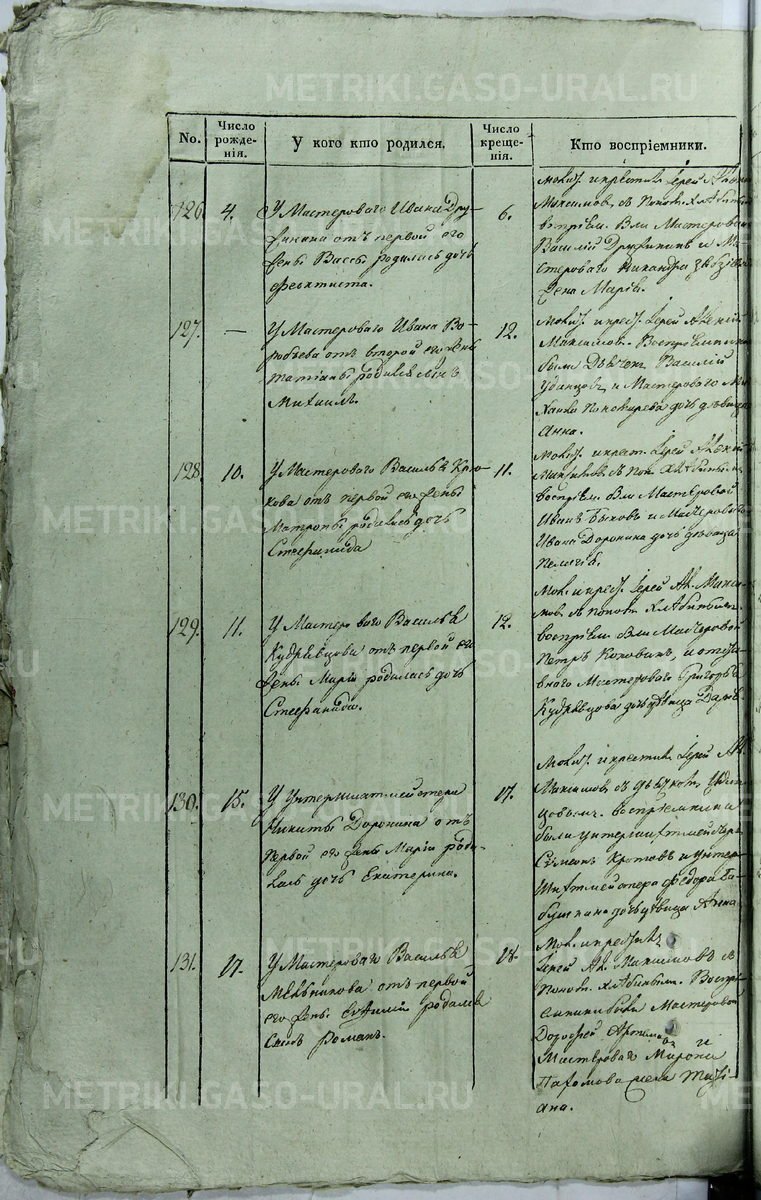 METRIKI.GASO-URAL.RU
No.
Число рожде-нія.
У кого кто родился.
Число креще-нія.
Кто воспріемники.
126.
4.
У Мастероваго Ивана Дру-
жинина отъ первой его
жены Вассы родилась дочь
Феоктиста.
6.
молит. и крестил Іерей
Максимовъ съ Понов. Хлѣбинымъ
воспріем. были Мастеровой
Василій Дружининъ и Ма-
стероваго Никандра
жена Марія.
127.
—
У Мастероваго Ивана Во-
робьева отъ второй его жены
Татіаны родился сынъ
Михаилъ.
12.
молит. и крест. Іерей Алексій
Максимов. Воспріемники
были Дьячек Василій
и Мастероваго Ми-
хаила дочь девица
Анна.
128.
10.
У Мастероваго Василья Крю-
кова отъ первой его жены
Матроны родилась дочь
Стефанида
11.
молит. и крест. Іерей Алексій
Максимовъ съ Пон. Хлѣбинымъ
воспріем. были Мастеровой
Иванъ Быковъ и Мастероваго
Ивана Доронина дочь девица
Пелагія.
129.
11.
У Мастероваго Василья
Кудрявцова отъ первой его
жены Маріи родилась дочь
Стефанида.
12.
мол. и крест. Іерей Ал. Макси-
мов. съ понов. Хлѣбинымъ.
воспріем. были Мастеровой
Петръ и отста-
внаго Мастероваго Григорья
Кудрявцова дочь девица Дарья
130.
15.
У Унтершихтмейстера
Никиты Доронина отъ
первой его жены Маріи роди-
лась дочь Екатерина.
17.
молит. и крестил Іерей Ал.
Максимовъ съ дьячком
воспріемники
были унтершихтмейстеръ
Симеонъ Кротовъ и унтер-
шихтмейстера Федора Ба-
бушкина дочь девица Анна
131.
17.
У Мастероваго Василья
Мельникова отъ первой
его жены Евдиміи родился
сынъ Романъ.
18.
мол. и крестилъ
Іерей Ал. Максимовъ съ
Понов. Хлѣбиным. Воспрі-
емники были Мастеровой
Дорофей и
Мастероваго Мирона
Пахомова жена Татi-
ана.
METRIKI.GASO-URAL.RU
METRIKI.GASO-URAL.RU
METRIKI.GASO-URAL.RU
METRIKI.GASO-URAL.RU
METRIKI.GASO-URAL.RU